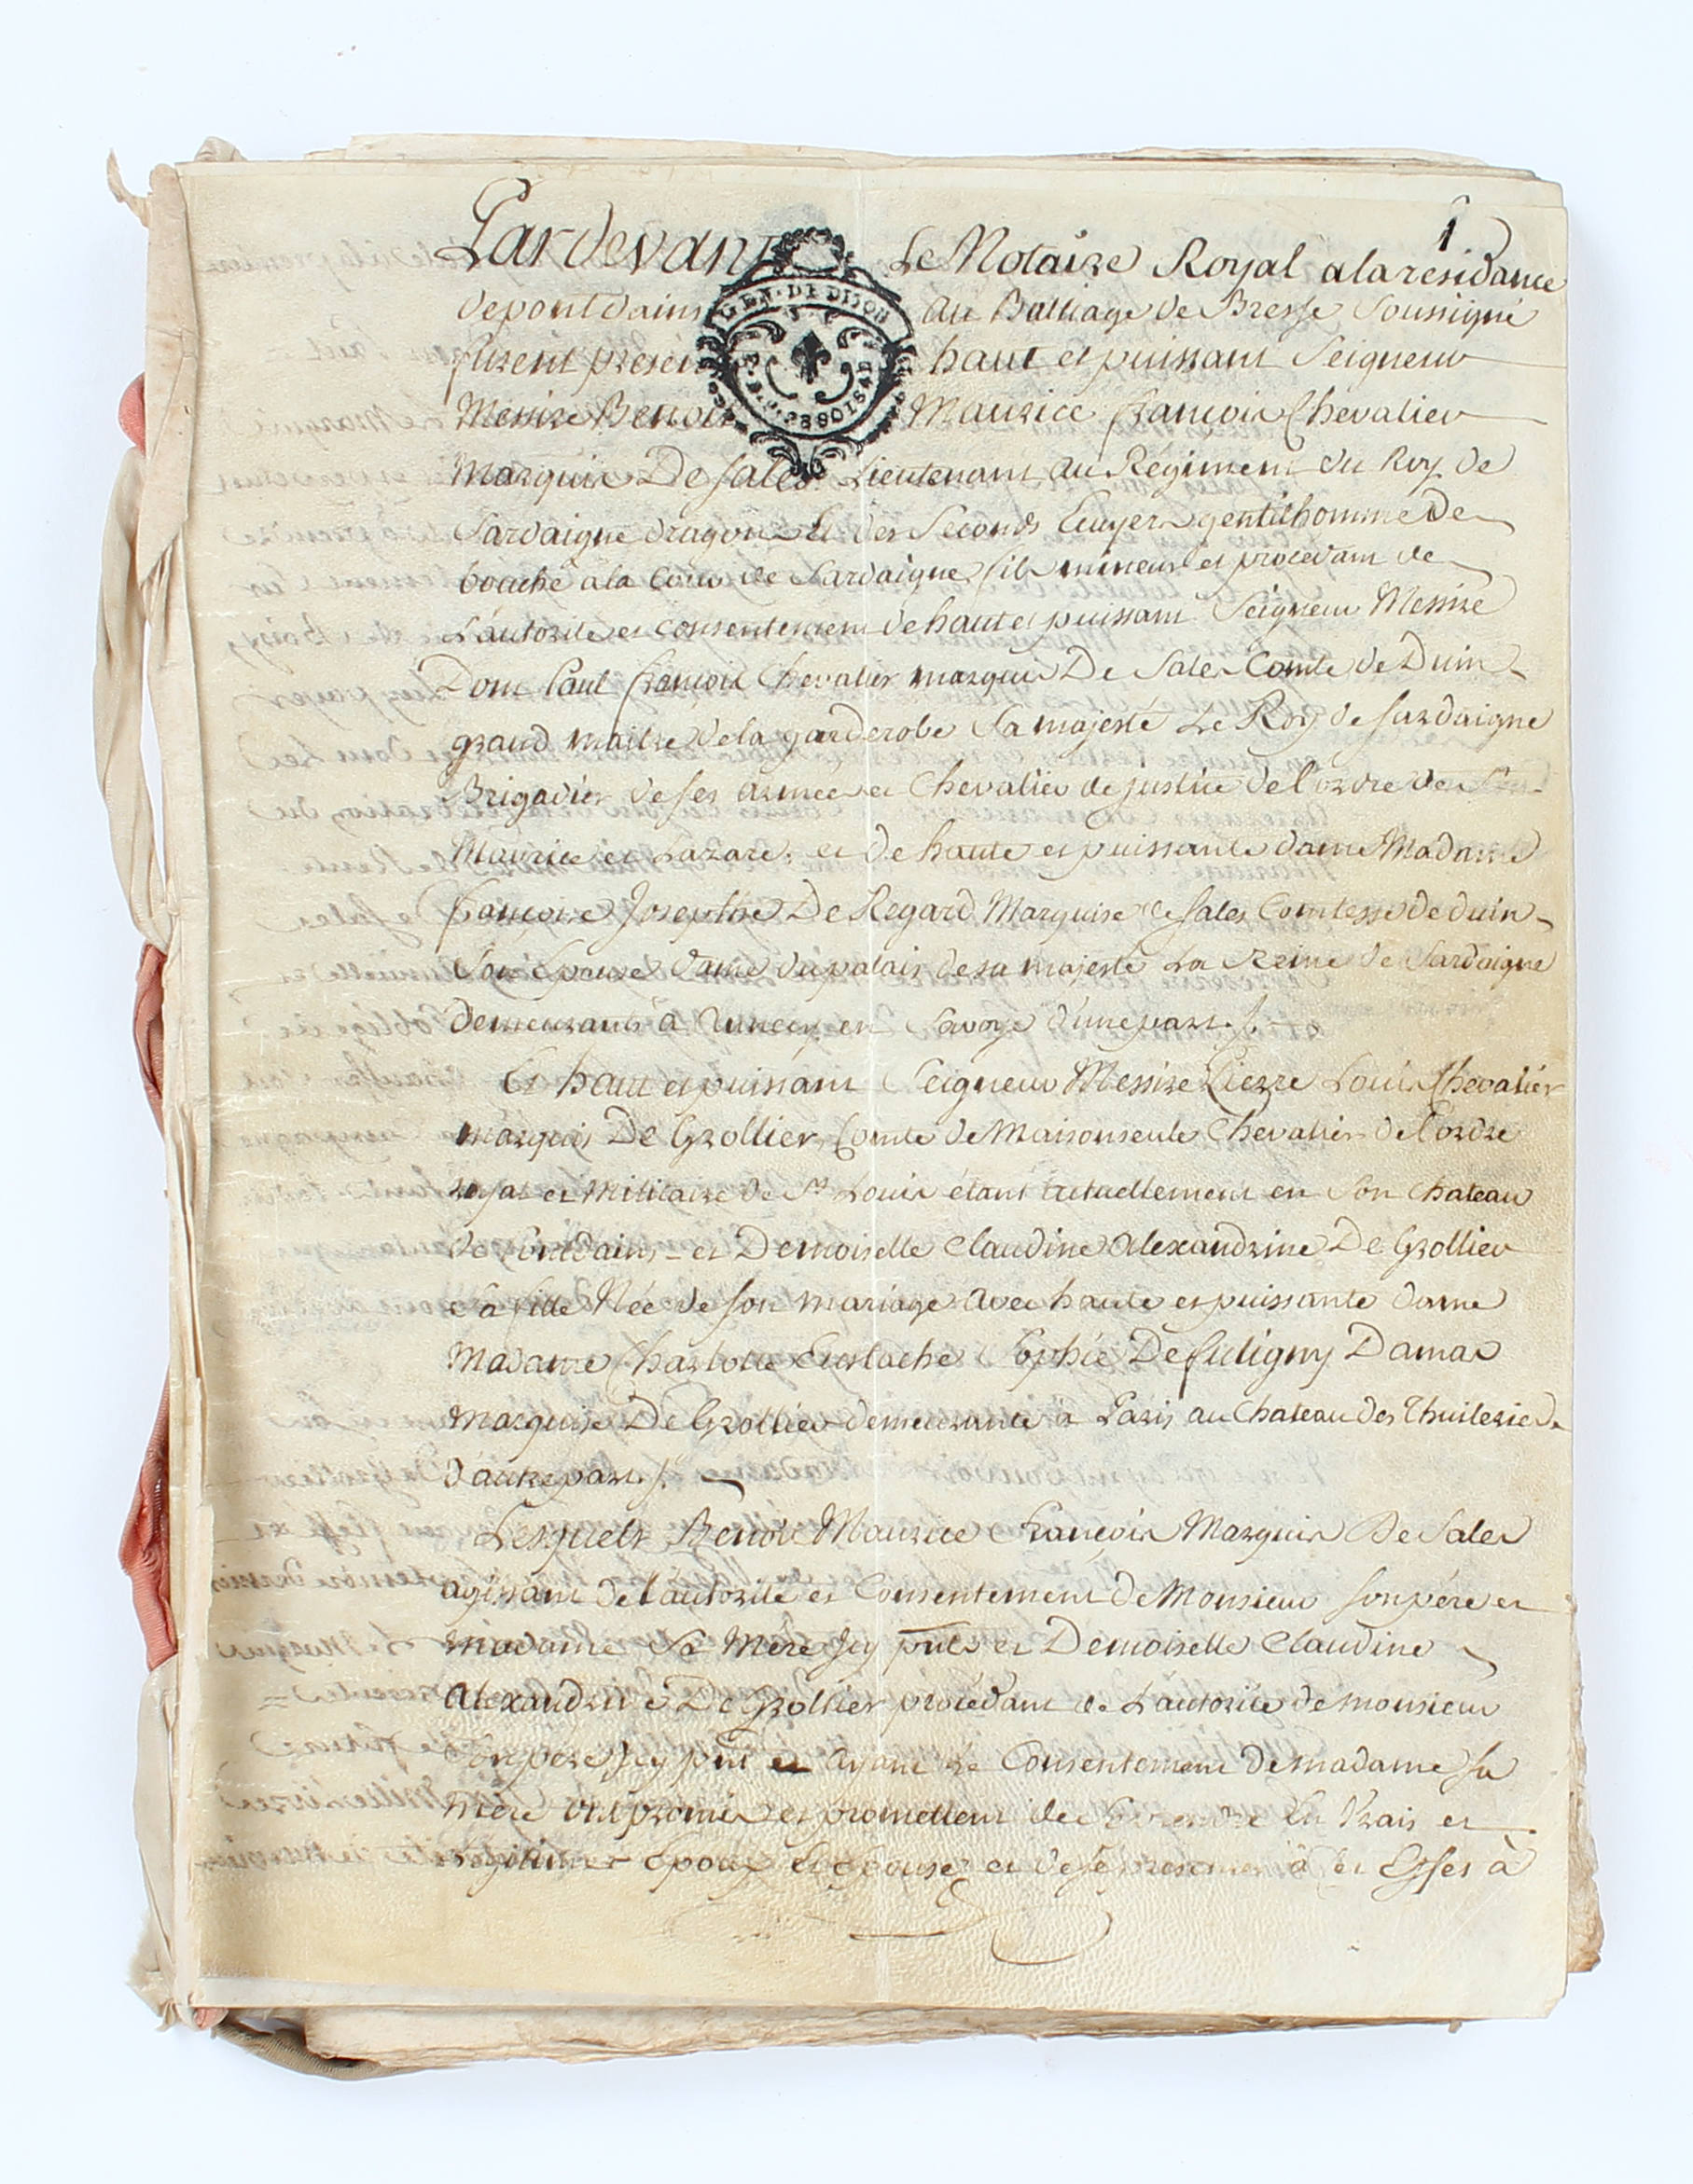 1
Pardevant Le Notaire Royal a la residance
de pont dains au Balliage de Bresse Soussigné
GEN. DE DIJON
furent presen haut et puissant Seigneur
Messire Benoit Maurice François Chevalier
Marquis De Sales Lieutenant au Régiment du Roy de
Sardaigne dragons Et des Seconds Ecuyers gentilhomme De
bouche à la Cour de Sardaigne, fils mineur et procedant de
L'autorité et consentement de haut et puissant Seigneur Messire
Dom Paul François Chevalier marquis De Sales Comte de Duin
grand maitre de la garderobe Sa majesté Le Roy de Sardaigne
Brigadier de ses armées et Chevalier de justice de l'ordre des Sts
Maurice et Lazare, et de haute et puissante dame Madame
Françoise Josephe De Regard Marquise de Sales Comtesse de duin
Son Epouse dame du palais de sa majesté La Reine de Sardaigne
demeurants à annecy en Savoye d'une part /.
Et haut et puissant Seigneur Messire Pierre Louis Chevalier
marquis De Grollier, Comte de Maisonseule Chevalier de l'ordre
royal et Militaire de St Louis étant actuellement en Son Chateau
de Pontdains et Demoiselle Claudine Alexandrine De Grollier
Sa fille Née de son mariage avec haute et puissante dame
Madame Charlotte Eustache Sophie De fuligny Damas
Marquise De Grollier demeurante à Paris au Chateau des Thuileries
d'autre part /.
Lesquels Benoit Maurice François Marquis De Sales
agissant de l'autorité et Consentement de Monsieur son père et
Madame Sa Mère Icy pnts et Demoiselle Claudine
Alexandrine De Grollier procédant de L'autorité de monsieur
Son pere Icy pnt et ayant le Consentement de madame sa
Mère ont promis et promettent de Se prendre En Vrais et
légitimes Epoux et Epouse et de se presenter à cet Effet à